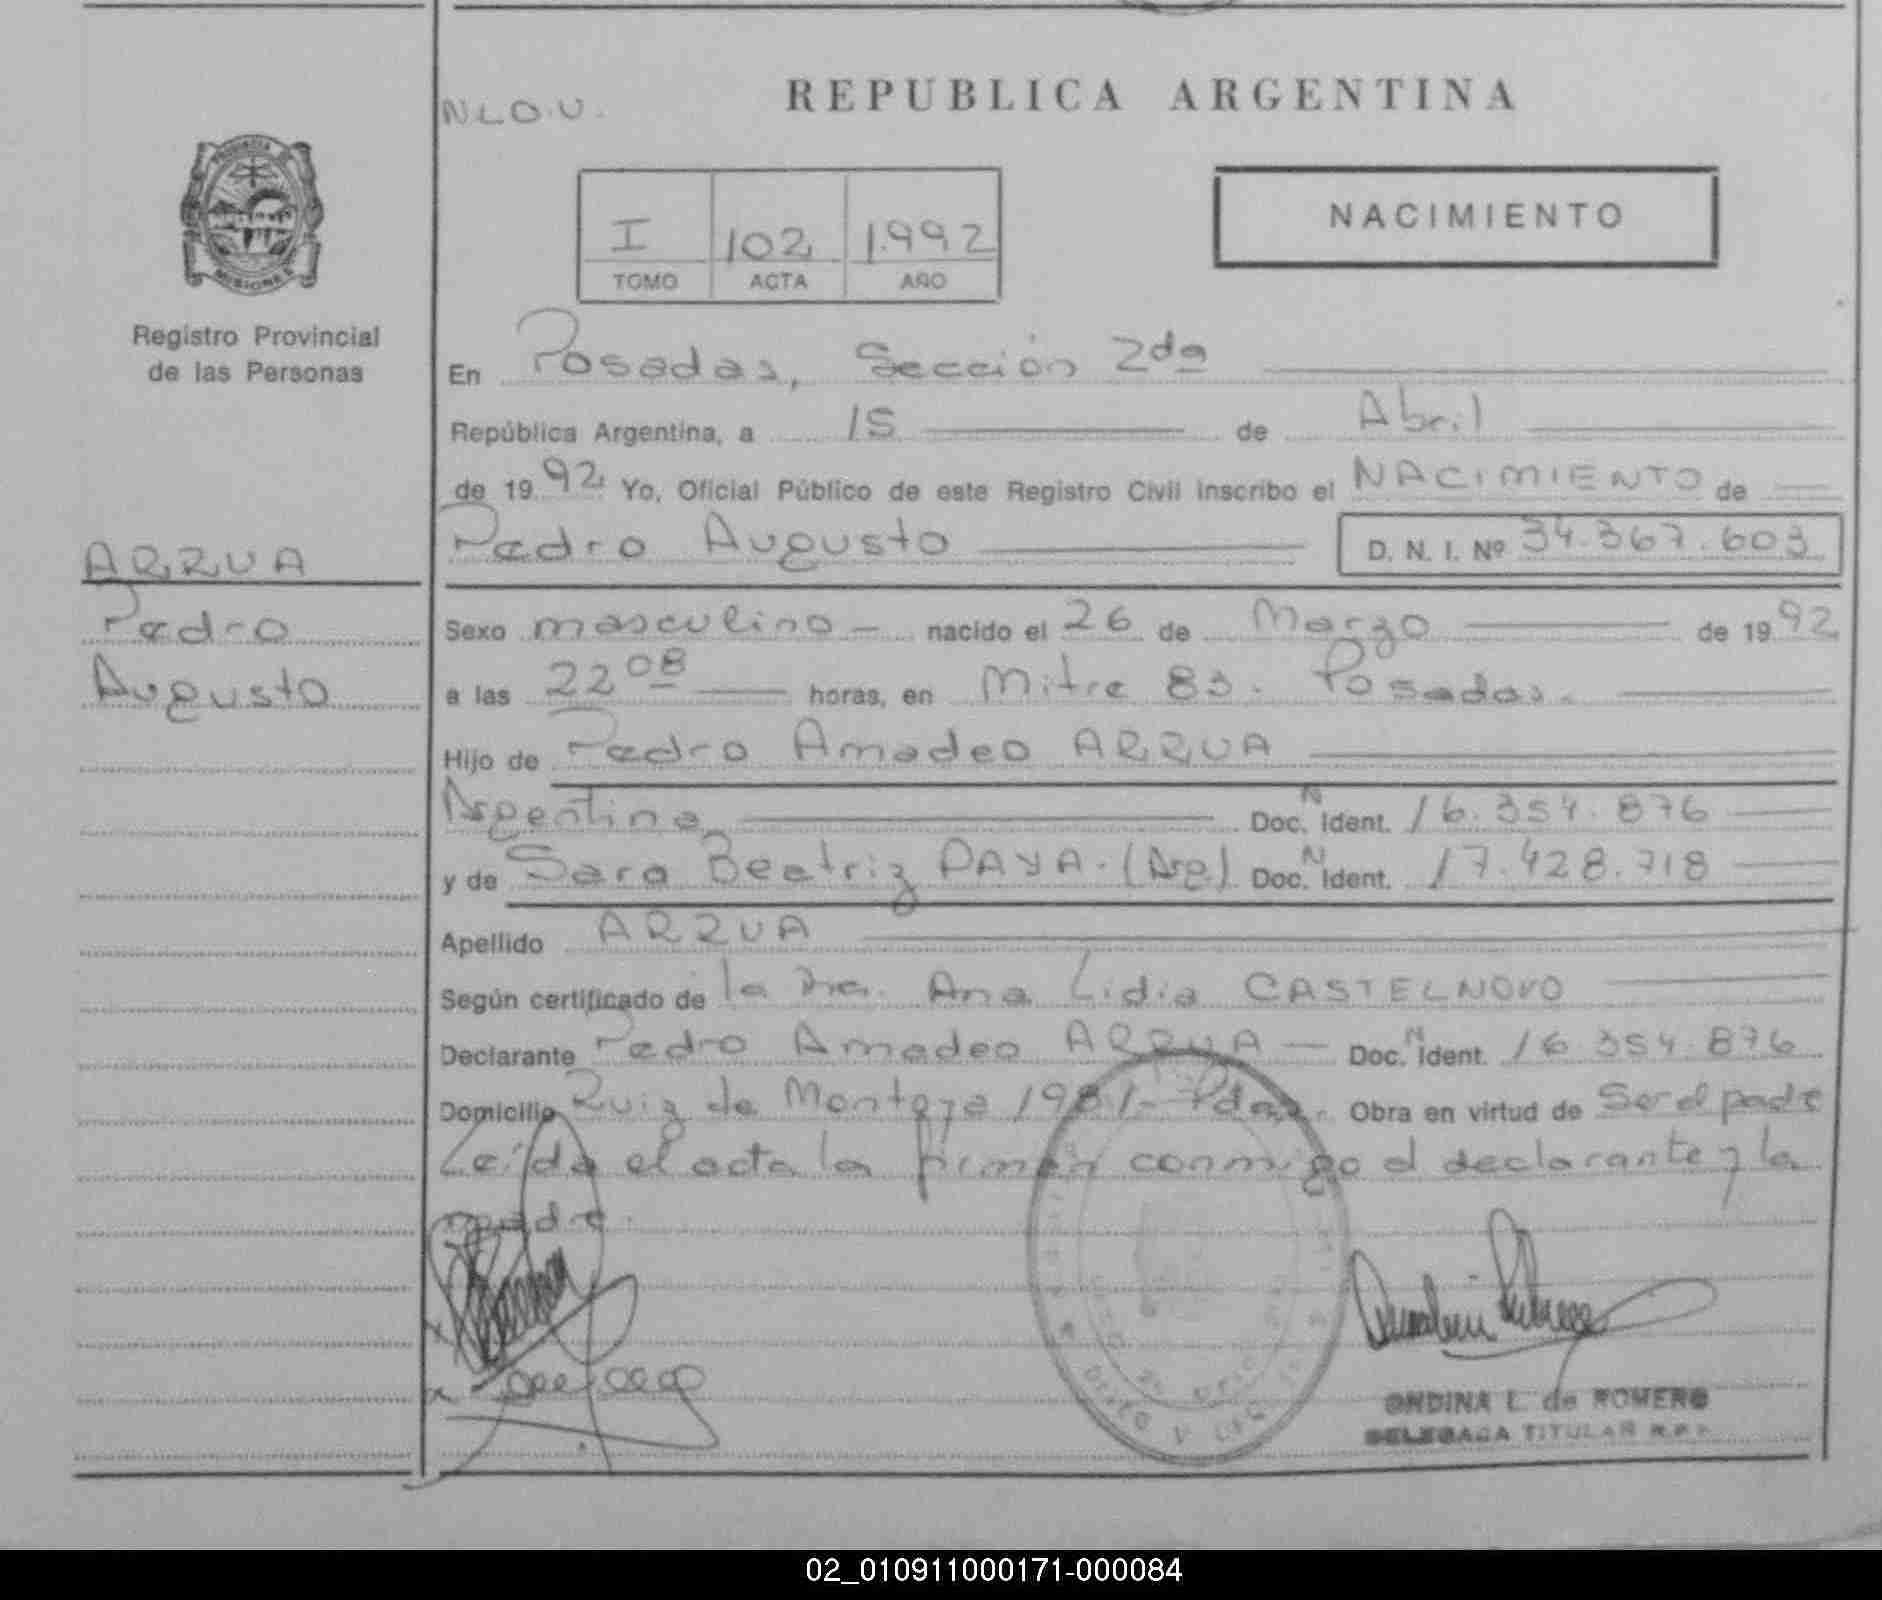 REPUBLICA ARGENTINA
N.L.O.U.
NACIMIENTO
I 102 1.992
TOMO ACTA AÑO
PROVINCIA DE
MISIONES
Registro Provincial
de las Personas
En Posadas, Sección 2da
República Argentina, a 15 de Abril
de 19 92 Yo, Oficial Público de este Registro Civil inscribo el NACIMIENTO de
Pedro Augusto D. N. I. Nº 34.367.603
ARRUA
Pedro
Augusto
Sexo masculino nacido el 26 de Marzo de 19 92
a las 22 08 horas, en Mitre 83. Posadas.
Hijo de Pedro Amadeo ARRUA
Argentina Doc. N Ident. 16.354.876
y de Sara Beatriz PAYA. (Arg) Doc. N Ident. 17.428.718
Apellido ARRUA
Según certificado de la Dra. Ana Lidia CASTELNOVO
Declarante Pedro Amadeo ARRUA Doc. N Ident. 16.354.876
Domicilio Ruiz de Montoya 1981 - Pdas. Obra en virtud de Ser el padre
Leída el acta la firman conmigo el declarante y la
madre.
ONDINA L. de ROMERO
DELEGADA TITULAR R.P.P.
02_010911000171-000084